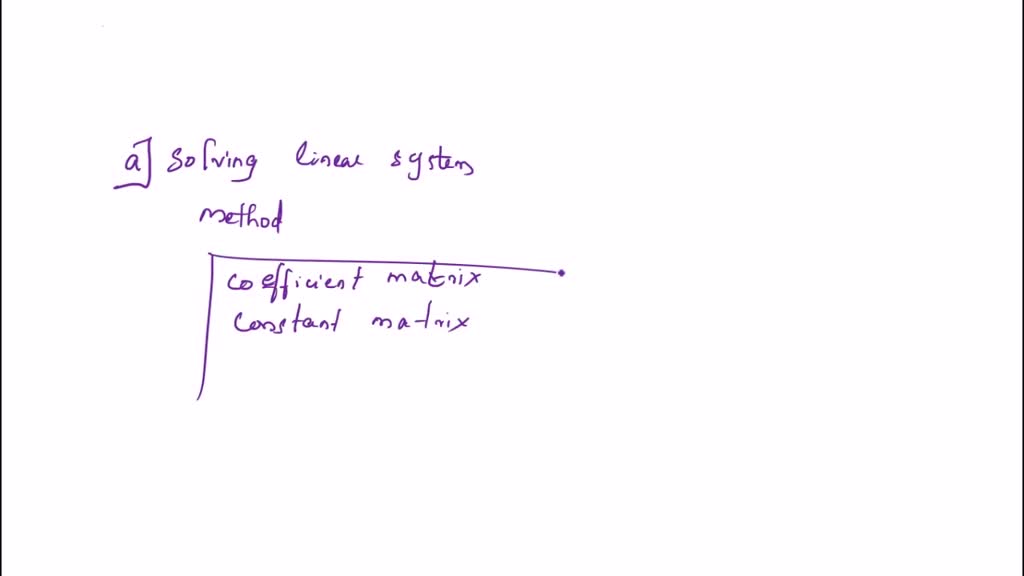 a] Solving linear system
method
coefficient matrix
constant matrix